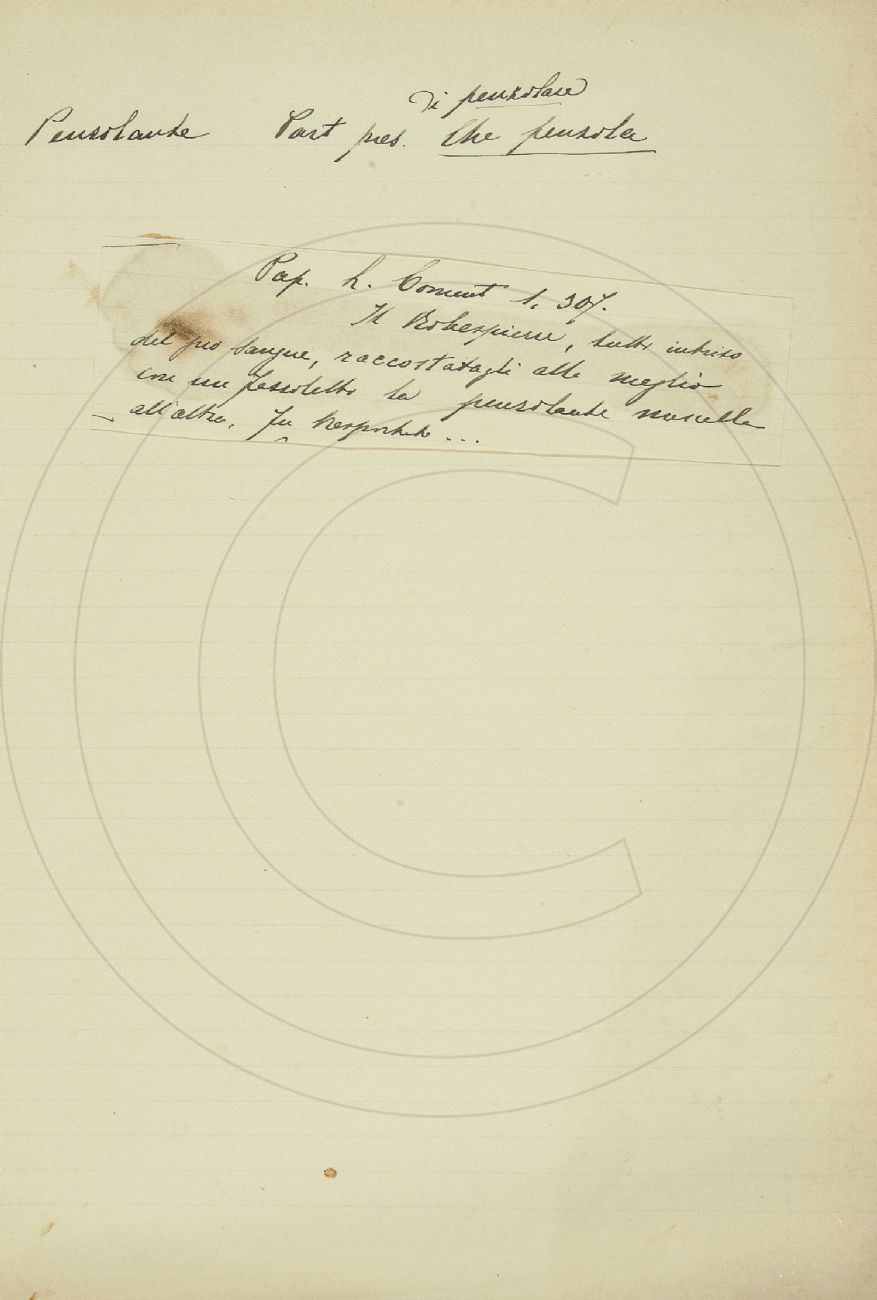 Di penzolare
Penzolante Part pres. Che penzola
Pap. L. Coment 1. 307.
Il Robespierre, tutto intriso
del pro sangue, raccostatagli alla meglio
con un fazzoletto la penzolante mascella
all'altra, fu trasportato ...